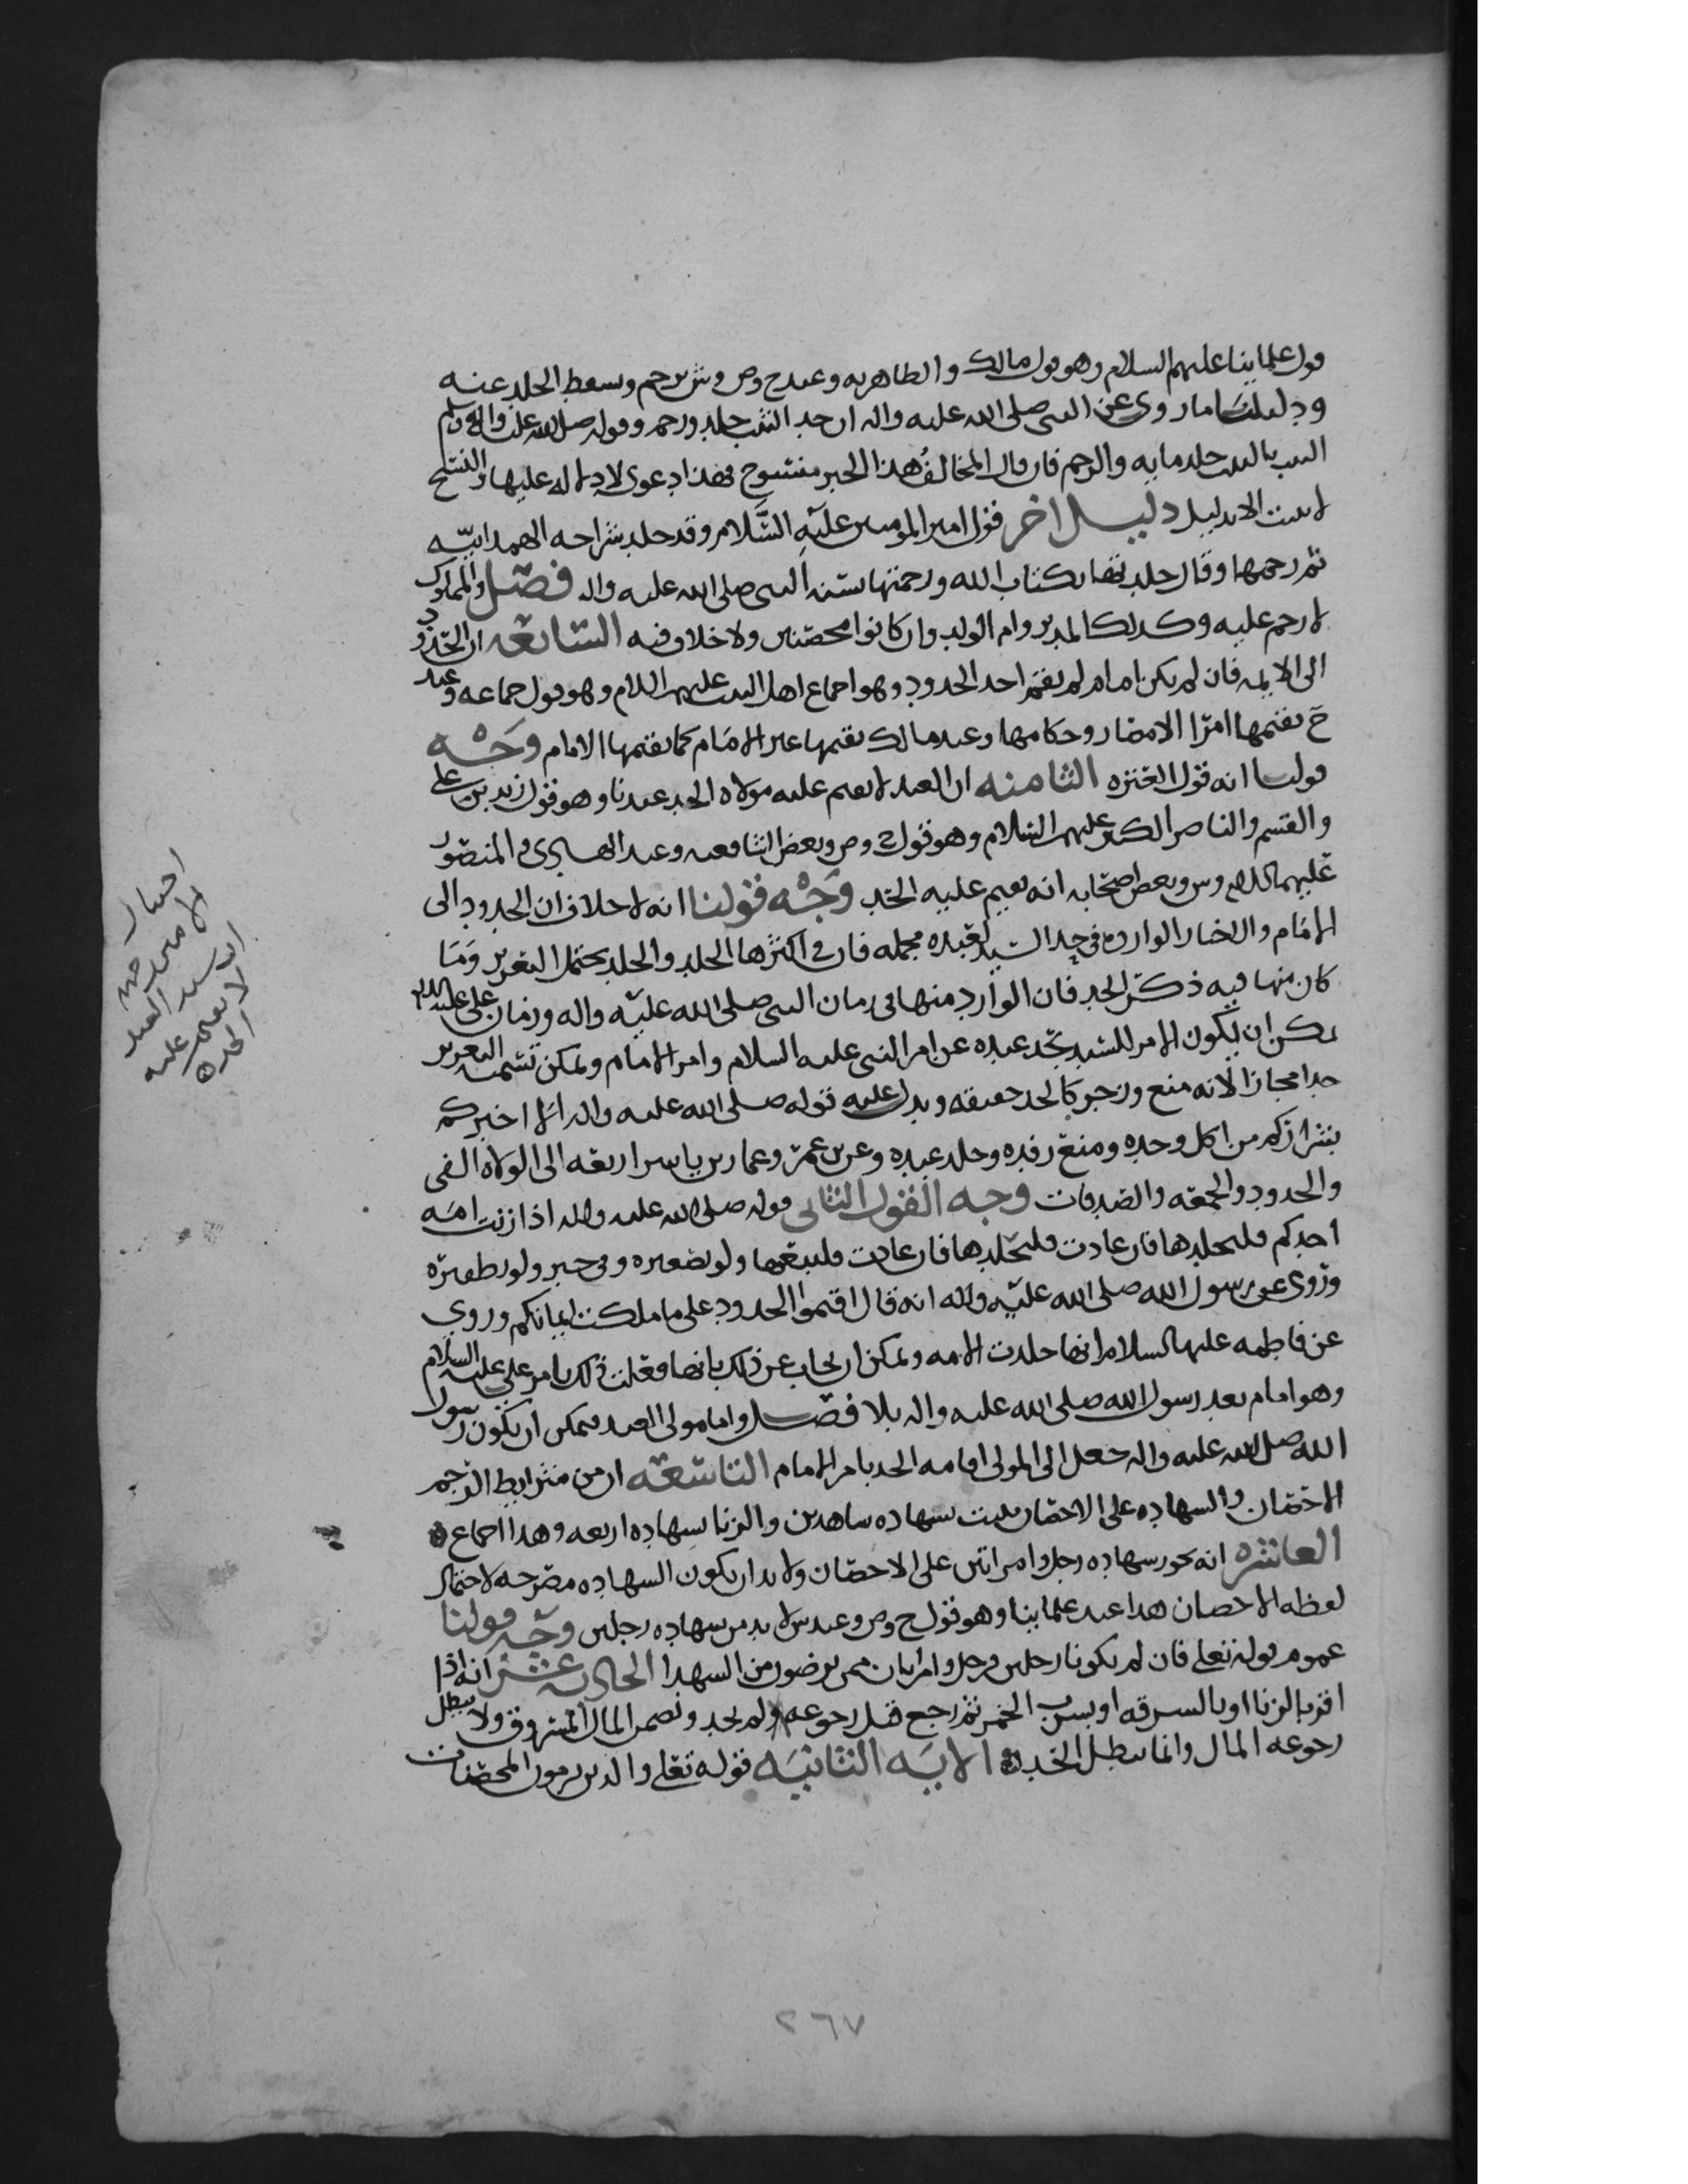 قول علماينا عليهم السلام وهو قول مالك والظاهريه وعند ح وص وش يرجم ويسقط الجلد عنه
ودليلنا ما روي عن النبي صلى الله عليه واله ان حد الثيب جلد ورجم وقوله صلى الله عليه واله وسلم
الثيب بالثيب جلد مايه والرجم فان قال المخالف هذا الخبر منسوخ فهذا دعوى لا دلاله عليها والنسخ
لا يثبت الا بدليل دليل اخر قول امير المومنين عليه السلام وقد جلد شراحه الهمدانيه
ثم رجمها وقال جلدتها بكتاب الله ورجمتها بسنه النبي صلى الله عليه واله فصل والمملوك
لا رجم عليه وكذلك المدبر وام الولد وان كانوا محصنين ولا خلاف فيه السابعه ان الحدود
الى الايمه فان لم يكن امام لم يقم احد الحدود وهو اجماع اهل البيت عليهم السلام وهو قول جماعه وعند
ح يقيمها امرا الامصار وحكامها وعند مالك يقيمها غير الامام كما يقيمها الامام وجه
قولنا انه قول العتره الثامنه ان العبد لا يقيم عليه مولاه الحد عندنا وهو قول زيد بن علي
والقسم والناصر الكبير عليهم السلام وهو قول ح وص وبعض الشافعيه وعند الهادي والمنصور
عليهما السلام وس وبعض اصحابه انه يقيم عليه الحد وجه قولنا انه لا خلاف ان الحدود الى
الامام والاخبار الوارده في حد السيد لعبده مجمله فان في اكثرها الجلد والجلد يحتمل التعزير وما
كان منها فيه ذكر الحد فان الوارد منها في زمان النبي صلى الله عليه واله وزمان علي عليه السلام
يمكن ان يكون الامر للسيد بحد عبده عن امر النبي عليه السلام وامر الامام ويمكن تسميه التعزير
حدا مجازا لانه منع وزجر كالحد حقيقه ويدل عليه قوله صلى الله عليه واله الا اخبركم
بشراركم من اكل وحده ومنع رفده وجلد عبده وعن بن عمر وعمار بن ياسر اربعه الى الولاه الفي
والحدود والجمعه والصدقات وجه القول الثاني قوله صلى الله عليه واله اذا زنت امه
احدكم فليجلدها فان عادت فليجلدها فان عادت فليبعها ولو بضفيره وفي خبر ولو بظفيره
وروي عن رسول الله صلى الله عليه واله انه قال اقيموا الحدود على ما ملكت ايمانكم وروي
عن فاطمه عليها السلام انها جلدت الامه ويمكن ان يجاب عن ذلك بانها فعلت ذلك بامر علي عليه السلام
وهو امام بعد رسول الله صلى الله عليه واله بلا فصل واما مولى العبد فيمكن ان يكون رسول
الله صلى الله عليه واله جعل الى المولى اقامه الحد بامر الامام التاسعه ان من شرايط الرجم
الاحصان والشهاده على الاحصان يثبت بشهاده شاهدين والزنا بشهاده اربعه وهذا اجماع
العاشره انه يجوز شهاده رجل وامراتين على الاحصان ولا بد ان يكون الشهاده مصرحه لاحتمال
لفظه الاحصان هذا عند علماينا وهو قول ح وص وعند س لا بد من شهاده رجلين وجه قولنا
عموم قوله تعلى فان لم يكونا رجلين فرجل وامراتان ممن ترضون من الشهدا الحاديه عشر انه اذا
اقر بالزنا او بالسرقه او بشرب الخمر ثم رجع قبل رجوعه ولم يحد ويضمن المال المسروق ولا يبطل
رجوعه المال وانما يبطل الحد الايه الثانيه قوله تعلى والذين يرمون المحصنات
اختيار
الامير حسين
ان سيد العبد
لا يقيم عليه
الحد
٢٦٧